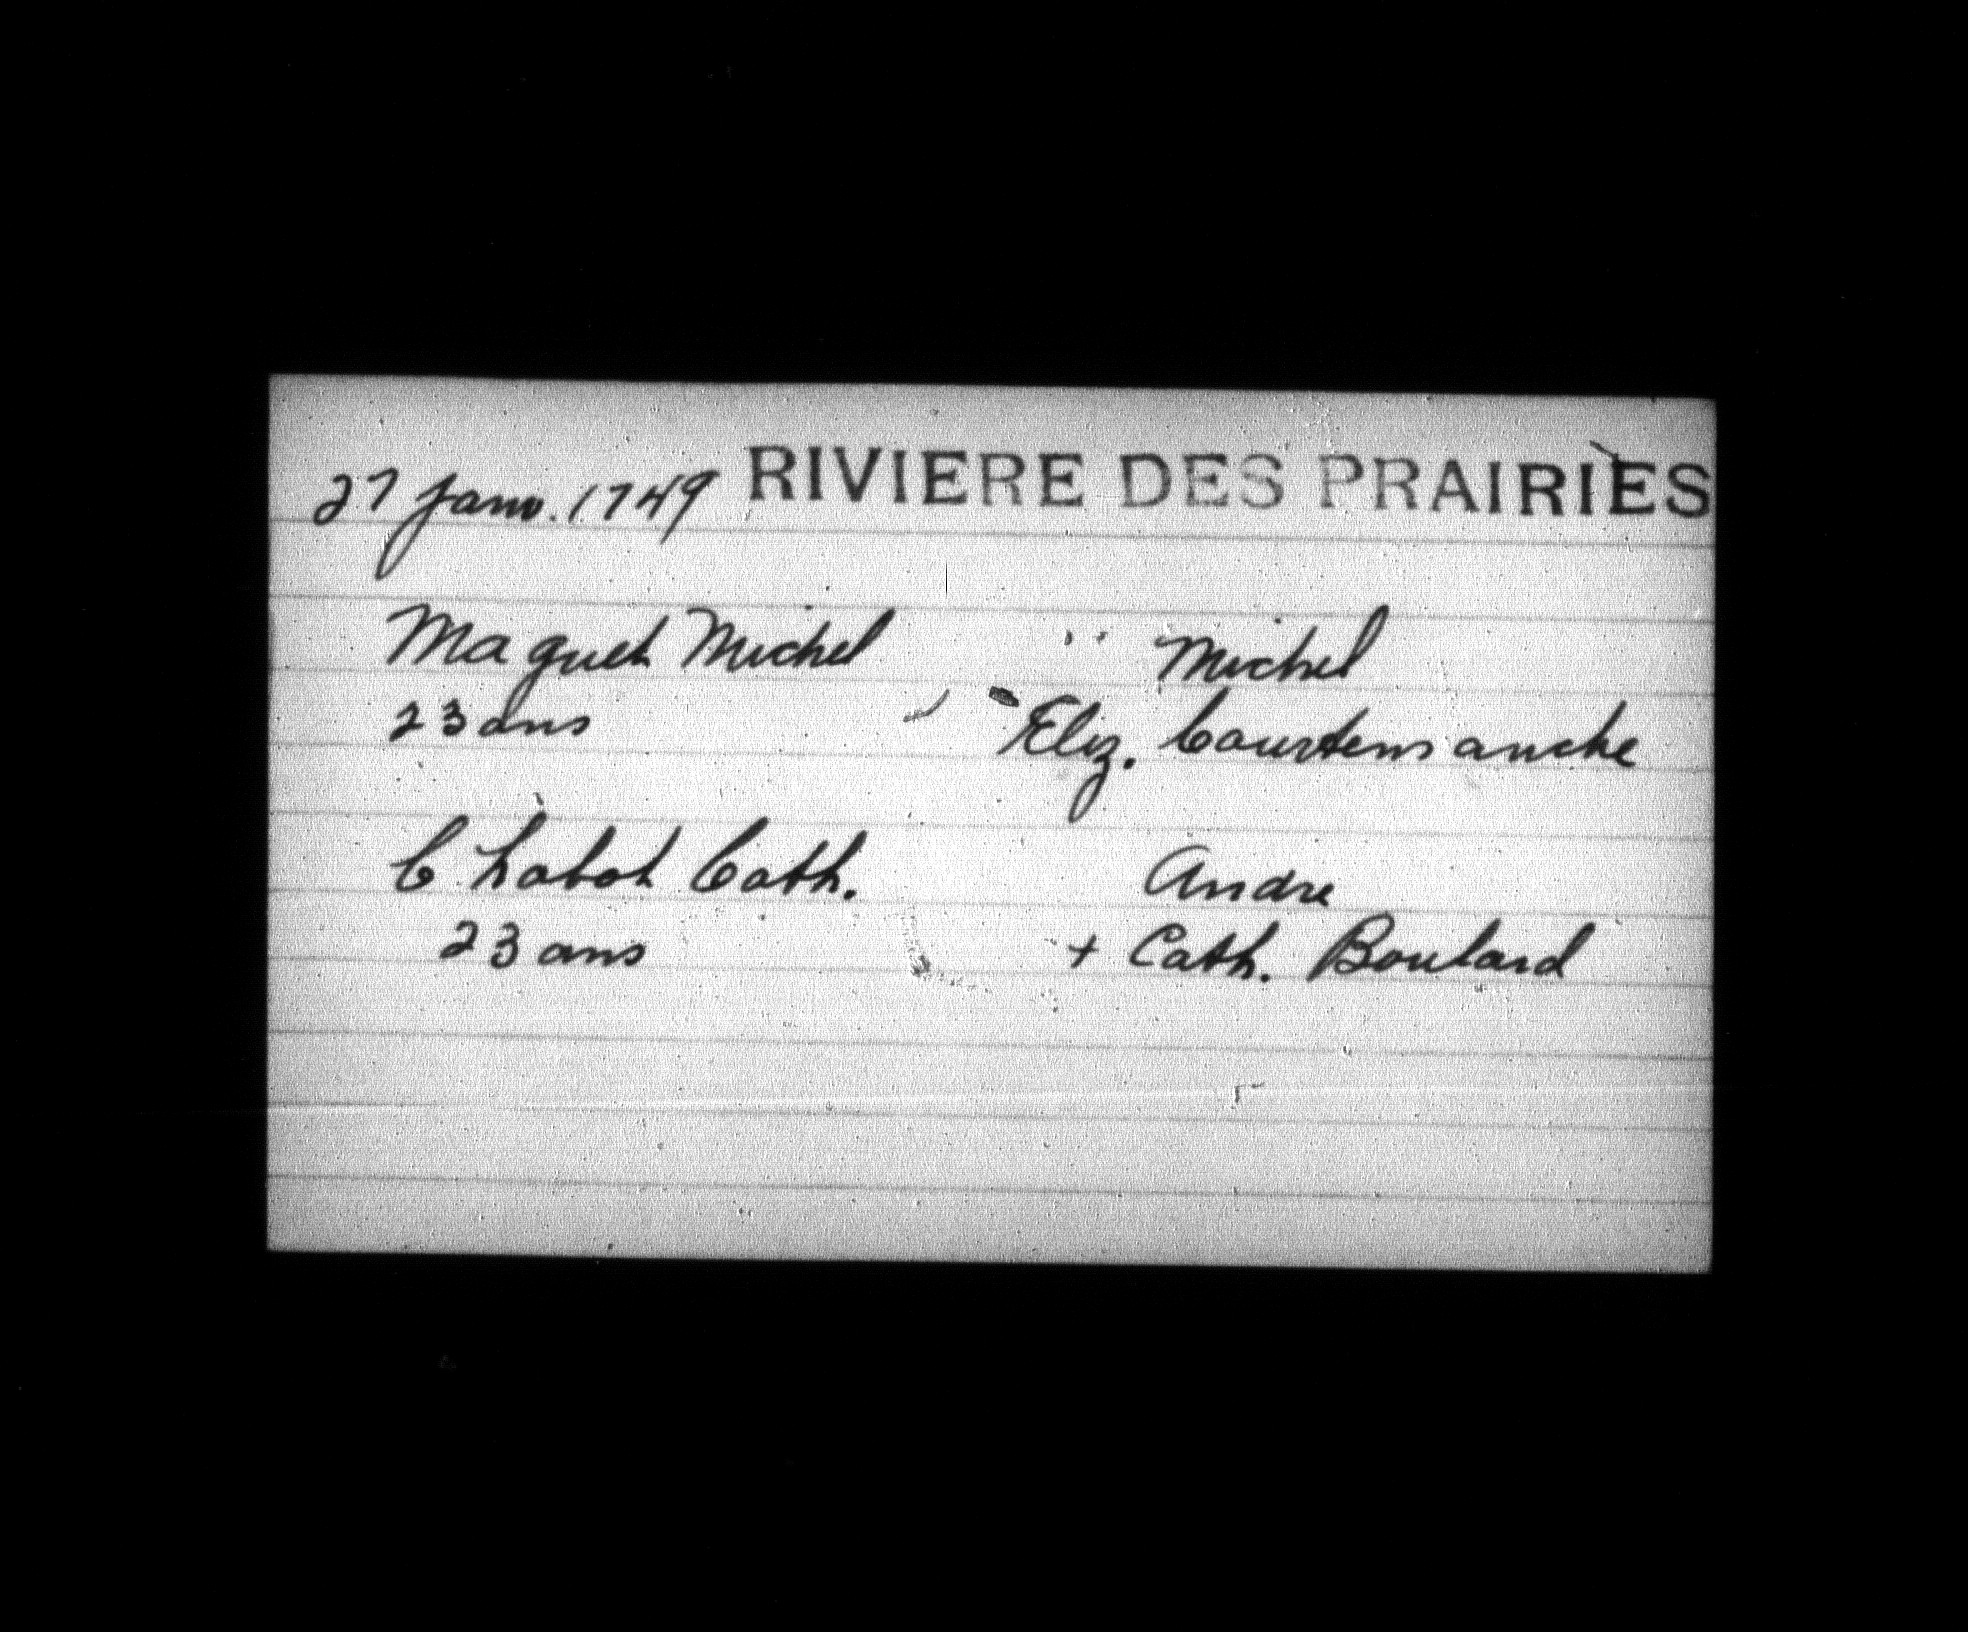 27 Janv. 1749 RIVIERE DES PRAIRIES
Maguet Michel " Michel
23 ans Eliz. Courtemanche
Chabot Cath. Andre
23 ans + Cath. Boulard